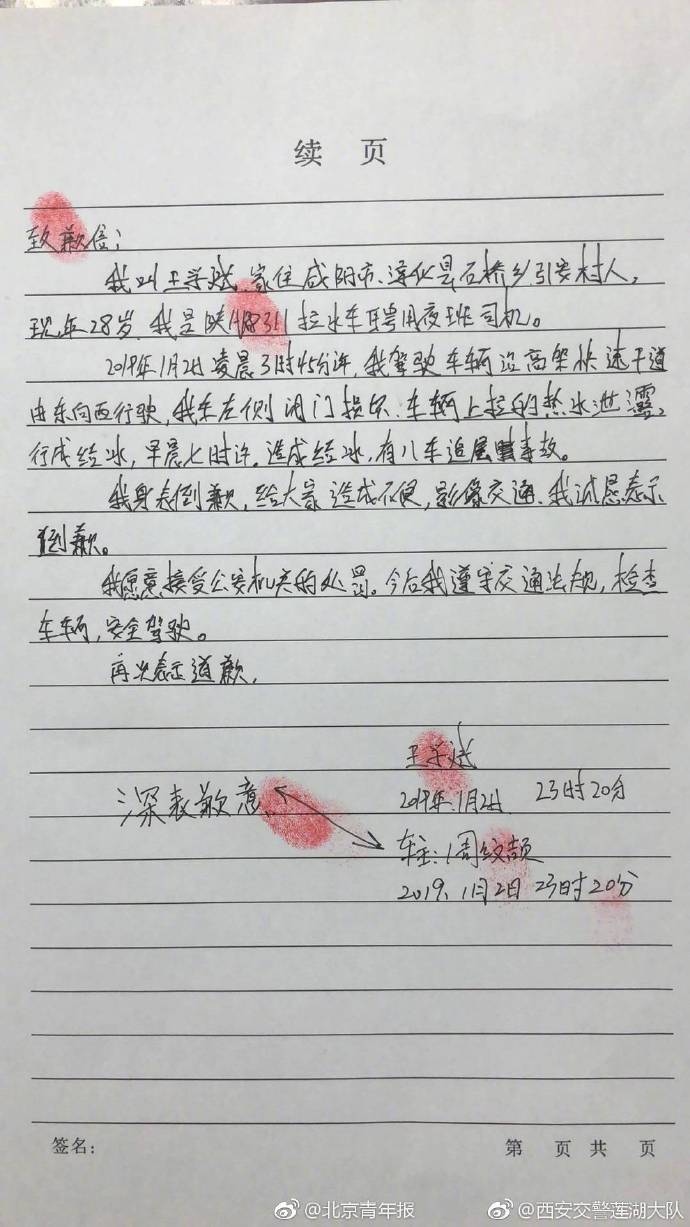 续 页
致歉信:
我叫王学斌.家住咸阳市.淳化县石桥乡引安村人,
现年28岁.我是陕 拉水车聘用夜班司机。
2019年1月2日凌晨3时45分许,我驾驶车辆沿高架快速干道
由东向西行驶,我车左侧闭门损坏.车辆上拉的热水泄露,
行成结冰,早晨七时许.造成结冰,有八车追尾事故。
我身表倒歉,给大家造成不便,影像交通.我诚恳表示
倒歉。
我愿意接受公安机关的处罚。今后我遵守交通法规,检查
车辆,安全驾驶。
再次表示道歉.
王学斌
2019年.1月2日. 23时20分
深表歉意.
车主:周纹颉
2019.1月2日 23时20分
签名: 第 页 共 页
@北京青年报 @西安交警莲湖大队